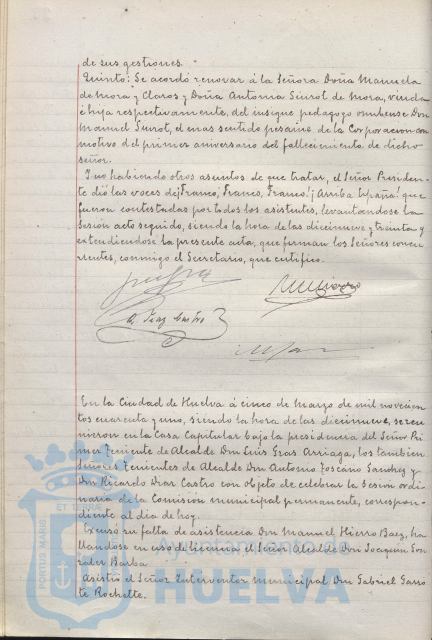 de sus gestiones.
Quinto: Se acordó renovar á la Señora Doña Manuela
de Mora y Claros y Doña Antonia Siurot de Mora, viuda
é hija respectivamente, del insigne pedagogo onubense Don
Manuel Siurot, el mas sentido pesame de la Corporacion con
motivo del primer aniversario del fallecimiento de dicho
señor.
Y no habiendo otros asuntos de que tratar, el Señor Presiden-
te dió las voces de ¡Franco, Franco, Franco! ¡Arriba España! que
fueron contestadas por todos los asistentes, levantandose la
Sesión acto seguido, siendo la hora de las diecinueve y treinta y
extendiendose la presente acta, que firman los Señores concu-
rrentes, conmigo el Secretario, que certifico.
R. Diaz Castro
En la Ciudad de Huelva á cinco de marzo de mil novecien
tos cuarenta y uno, siendo la hora de las diecinueve, se reu
nieron en la Casa Capitular bajo la presidencia del Señor Pri
mer Teniente de Alcalde Don Luis Gras Arriaga, los tambien
Señores Tenientes de Alcalde Don Antonio Toscano Sanchez y
Don Ricardo Diaz Castro con objeto de celebrar la Sesión ordi
naria de la Comision municipal permanente, correspon-
diente al dia de hoy.
Excusó su falta de asistencia Don Manuel Hierro Baez, ha
llandose en uso de licencia el Señor Alcalde Don Joaquin Gon
zalez Barba.
Asistió el Señor Interventor municipal Don Gabriel Garro
te Rochette.
PORTUS MARIS ET TERRAE
Ayuntamiento de
HUELVA